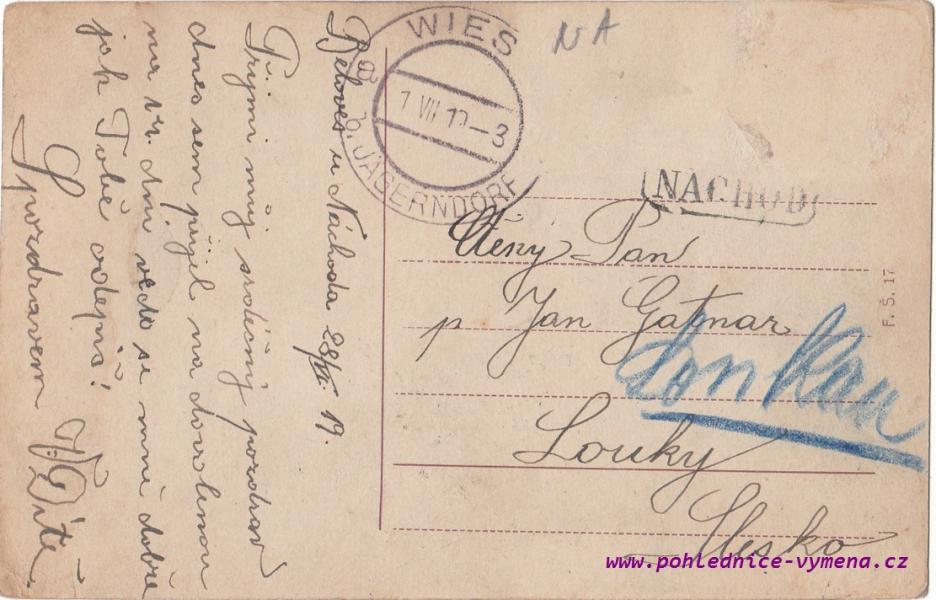 Běloves u Náchoda 28/VI. 19.
Přijmi můj srdečný pozdrav
dnes sem přijel na dovolenou
na dni vede se mně dobře
jak Tobě odepiš!
S pozdravem
Vítě.
WIES
b. JÄGERNDORF
1 VII 19 – 3
NA
NÁCHOD
Ctěný Pan
p Jan Gaťnar
Louky
Slesko
F. S. 17
www.pohlednice-vymena.cz